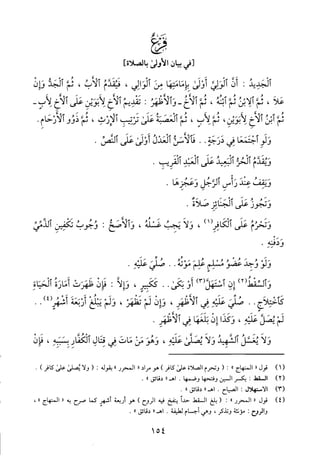 فَرْعٌ
[في بيان الأولىٰ بالصلاة]
الْجَدِيدُ : أَنَّ ٱلْوَلِيَّ أَوْلَىٰ بِإِمَامَتِهَا مِنَ ٱلْوَالِي ، فَيُقَدَّمُ ٱلأَبُ ، ثُمَّ ٱلْجَدُّ وَإِنْ
عَلاَ ، ثُمَّ ٱلاِبْنُ ثُمَّ ٱبْنُهُ ، ثُمَّ ٱلأَخُ ـ وَٱلأَظْهَرُ : تَقْدِيمُ ٱلأَخِ لِأَبَوَيْنِ عَلَى ٱلأَخِ لِأَبٍ ـ
ثُمَّ ٱبْنُ ٱلأَخِ لِأَبَوَيْنِ ، ثُمَّ لِأَبٍ ، ثُمَّ ٱلْعَصَبَةُ عَلَىٰ تَرْتِيبِ ٱلإِرْثِ ، ثُمَّ ذَوُو ٱلأَرْحَامِ .
وَلَوِ ٱجْتَمَعَا فِي دَرَجَةٍ .. فَٱلأَسَنُّ ٱلْعَدْلُ أَوْلَىٰ عَلَى ٱلنَّصِّ .
وَيُقَدَّمُ ٱلْحُرُّ ٱلْبَعِيدُ عَلَى ٱلْعَبْدِ ٱلْقَرِيبِ .
وَيَقِفُ عِنْدَ رَأْسِ ٱلرَّجُلِ وَعَجُزِهَا .
وَتَجُوزُ عَلَى ٱلْجَنَائِزِ صَلاَةٌ .
وَتَحْرُمُ عَلَى ٱلْكَافِرِ(١) ، وَلاَ يَجِبُ غَسْلُهُ ، وَٱلأَصَحُّ : وُجُوبُ تَكْفِينِ ٱلذِّمِّيِّ
وَدَفْنِهِ .
وَلَوْ وُجِدَ عُضْوُ مُسْلِمٍ عُلِمَ مَوْتُهُ .. صُلِّيَ عَلَيْهِ .
وَٱلسِّقْطُ(٢) إِنِ ٱسْتَهَلَّ(٣) أَوْ بَكَىٰ .. كَكَبِيرٍ ، وَإِلاَّ : فَإِنْ ظَهَرَتْ أَمَارَةُ ٱلْحَيَاةِ
كَٱخْتِلاَجٍ .. صُلِّيَ عَلَيْهِ فِي ٱلأَظْهَرِ ، وَإِنْ لَمْ تَظْهَرْ ، وَلَمْ يَبْلُغْ أَرْبَعَةَ أَشْهُرٍ(٤) ..
لَمْ يُصَلَّ عَلَيْهِ ، وَكَذَا إِنْ بَلَغَهَا فِي ٱلأَظْهَرِ .
وَلاَ يُغَسَّلُ ٱلشَّهِيدُ وَلاَ يُصَلَّىٰ عَلَيْهِ ، وَهُوَ مَنْ مَاتَ فِي قِتَالِ ٱلْكُفَّارِ بِسَبَبِهِ ، فَإِنْ
(١) قول « المنهاج » : ( وتحرم الصلاة على كافر ) هو مراد « المحرر » بقوله : ( ولا يُصلىٰ علىٰ كافر ) .
(٢) السقط : بكسر السين وفتحها وضمها . اهـ « دقائق » .
(٣) الاستهلال : الصياح . اهـ « دقائق » .
(٤) قول « المحرر » : ( بلغ السقط حداً ينفخ فيه الروح ) هو أربعة أشهر كما صرح به « المنهاج » ،
والروح : مؤنثة وتذكر ، وهي أجسام لطيفة . اهـ « دقائق » .
١٥٤